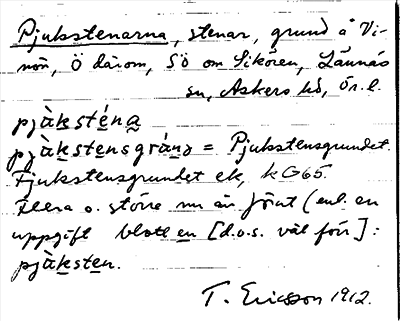 Pjukstenarna, stenar, grund å Vi-
nön, Ö därom, SÖ om Sikören, Lännäs
sn, Askers hd, Ör. l.
pjàksténa
pjàkstensgrán̲d = Pjukstensgrundet.
Fjukstensgrundet ek, k G65.
Flera o. större nu än förut (enl. en
uppgift blott en [d.o.s. väl förr]:
pjàksten.
T. Ericsson 1912.